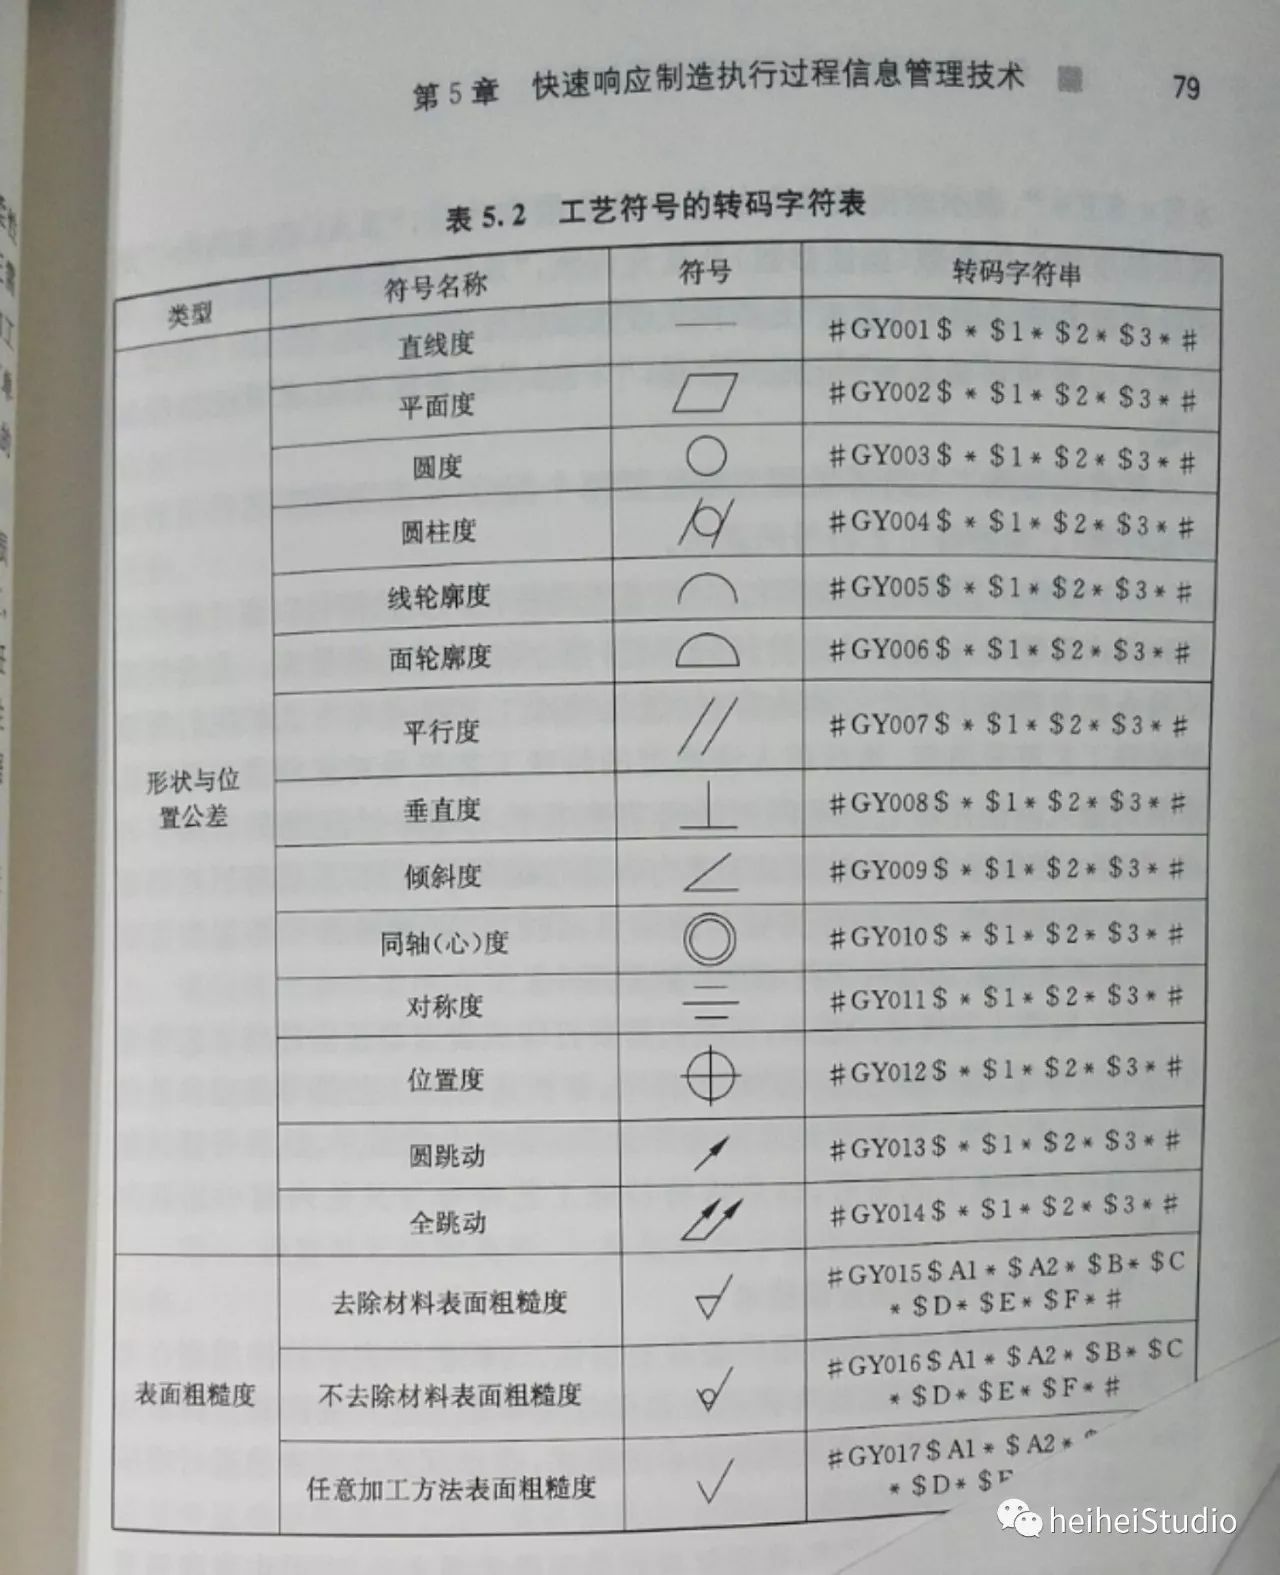 第5章 快速响应制造执行过程信息管理技术 79
表5.2 工艺符号的转码字符表
类型 符号名称 符号 转码字符串
直线度 #GY001$*$1*$2*$3*#
平面度 #GY002$*$1*$2*$3*#
圆度 #GY003$*$1*$2*$3*#
圆柱度 #GY004$*$1*$2*$3*#
线轮廓度 #GY005$*$1*$2*$3*#
面轮廓度 #GY006$*$1*$2*$3*#
平行度 #GY007$*$1*$2*$3*#
形状与位
置公差
垂直度 #GY008$*$1*$2*$3*#
倾斜度 #GY009$*$1*$2*$3*#
同轴(心)度 #GY010$*$1*$2*$3*#
对称度 #GY011$*$1*$2*$3*#
位置度 #GY012$*$1*$2*$3*#
圆跳动 #GY013$*$1*$2*$3*#
全跳动 #GY014$*$1*$2*$3*#
表面粗糙度
去除材料表面粗糙度 #GY015$A1*$A2*$B*$C
*$D*$E*$F*#
不去除材料表面粗糙度 #GY016$A1*$A2*$B*$C
*$D*$E*$F*#
任意加工方法表面粗糙度 #GY017$A1*$A2*
*$D*$
heiheiStudio